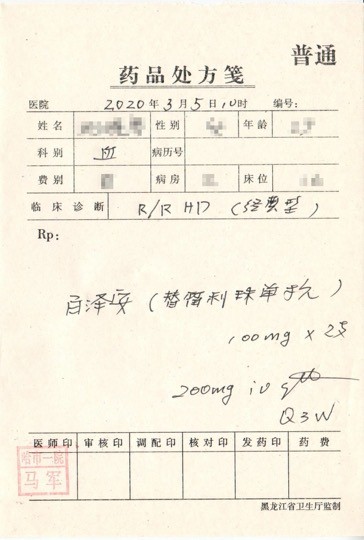 普通
药品处方笺
医院 2020年3月5日10时 编号:
姓名 性别 年龄
科别 血 病历号
费别 病房 床位
临床诊断 R/R HD (经典型)
Rp:
百泽安 (替雷利珠单抗)
100mg × 2支
200mg iv
Q3W
医师印 审核印 调配印 核对印 发药印 药费
哈市一院
马军
黑龙江省卫生厅监制